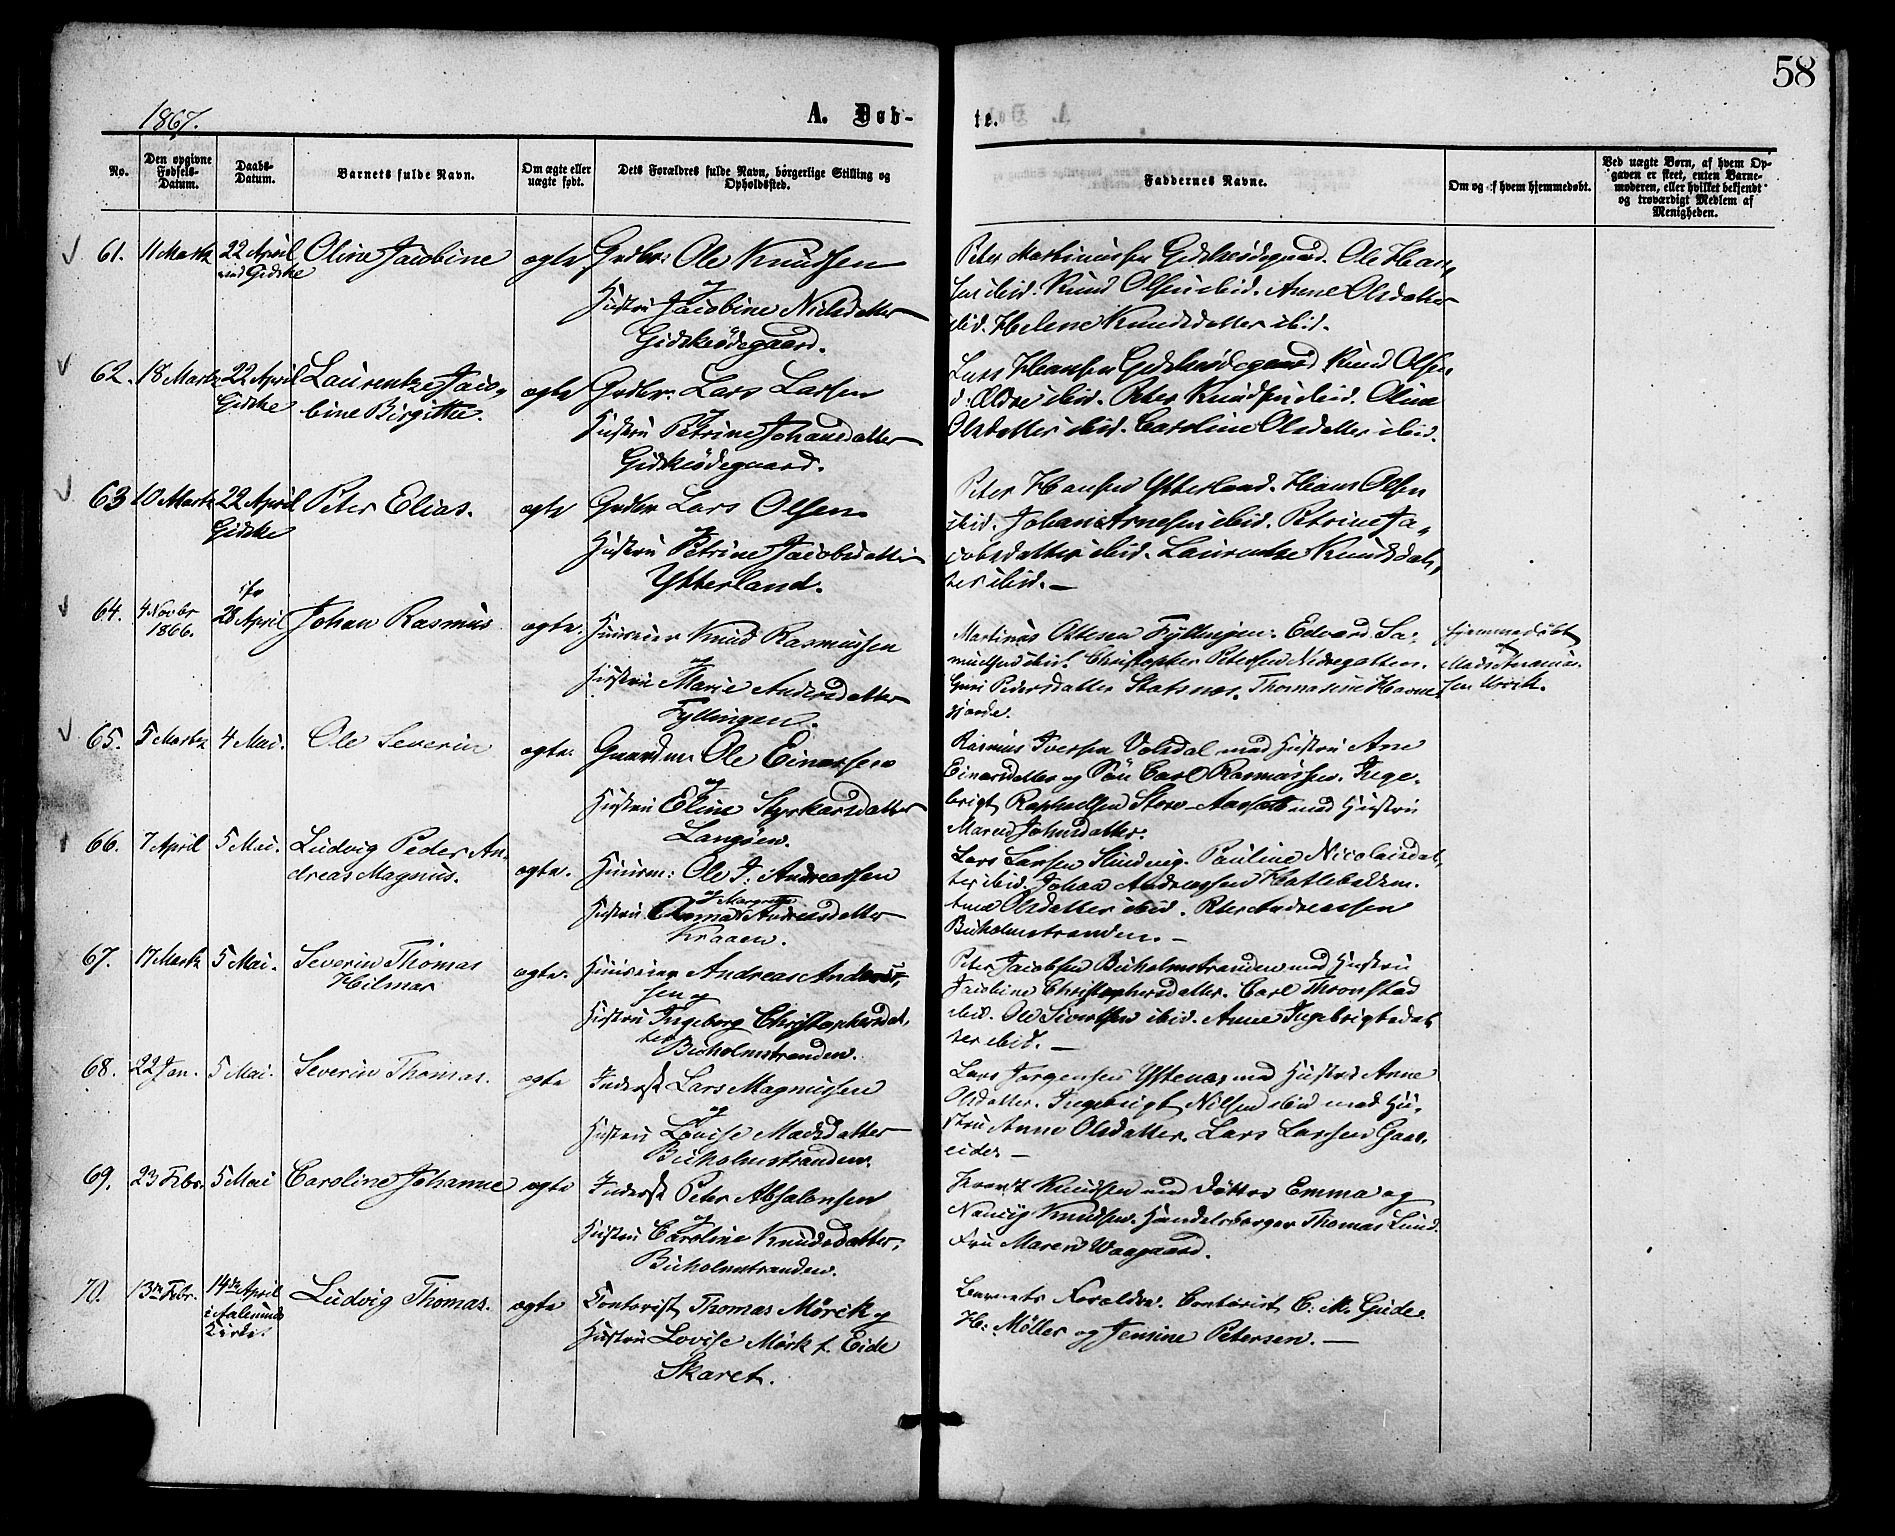 58
1867.
A. Døb-
te.
No.
Den opgivne Fødsels-Datum.
Daabs-Datum.
Barnets fulde Navn.
Om ægte eller uægte født.
Dets Forældres fulde Navn, borgerlige Stilling og Opholdssted.
Faddernes Navne.
Om og af hvem hjemmedøbt.
Ved uægte Børn, af hvem Opgaven er skeet, enten Barnemoderen, eller hvilket bekjendt og troværdigt Medlem af Menigheden.
61. 11 Marts 22 April Oline Jacobine ægte Grdbr: Ole Knudsen
Gidske og
Hustru Jacobine Nielsdatter
Gidskeødegaard.
Peter Martinussen Gidskeødegaard. Ole Han-
sen ibid. Knud Olsen ibid. Anne Olsdatter
ibid. Helene Knudsdatter ibid.
62. 18 Marts 22 April Laurentze Jaco- ægte Grdbr. Lars Larsen
Gidske bine Birgitte. og
Hustru Petrine Johansdatter
Gidskeødegaard.
Lars Hansen Gidskeødegaard Knud Olsen
d. Ældre ibid. Peter Knudsen ibid. Oline
Olsdatter ibid. Caroline Olsdatter ibid.
63 10 Marts 22 April Peter Elias. ægte Grdbr Lars Olsen
Gidske og
Hustru Petrine Jacobsdatter
Ytterland.
Peter Hansen Ytterland. Hans Olsen
ibid. Johan Arnesen ibid. Petrine Ja-
cobsdatter ibid. Laurentze Knudsdat-
ter ibid. —
64. 4 Novbr 28 April Johan Rasmus ægte. Huuseier Knud Rasmussen
1866. og
Hustru Marie Andersdatter
Fyllingen.
Martinus Ottesen Fyllingen. Edvard Sa-
muelsen ibid. Christopher Petersen Nedregotten.
Guri Pedersdatter Statsnes. Thomasine Havne-
gjærde.
hjemmedøbt
af
65. 5 Marts 4 Mai. Ole Severin ægte. Gaardm. Ole Einarsen
og
Hustru Eline Styrkarsdatter
Langøen.
Rasmus Iversen Volsdal med Hustru Ane
Einarsdatter og Søn Carl Rasmussen. Inge-
brigt Raphaelsen med Hustru
Maren Johnsdatter.
66. 7 April 5 Mai. Ludvig Peder An- ægte. Huusm: Ole J: Andreassen
dreas Magnus. og Margrethe
Hustru Anna Andreasdatter
Kraaen.
Lars Larsen Slinning. Pauline Nicolaisdat-
ter ibid. Johan Andreassen Hatlebakken.
Olsdatter ibid. Peter Andreassen
Buholmstranden. —
67. 17 Marts 5 Mai. Severin Thomas ægte. Huuseier Andreas Anders-
Hilmar sen og
Hustru Ingeborg Christophersdat-
ter
Buholmstranden.
Peter Jacobsen Buholmstranden med Hustru
Jacobine Christophersdatter. Carl Thronstad
ibid. Ole Sivertsen ibid. Anne Ingebrigtsdat-
ter ibid. —
68. 22 Jan. 5 Mai. Severin Thomas. ægte Inderst Lars Magnussen
og
Hustru Lovise Madsdatter
Buholmstranden.
Lars Jørgensen Ystenæs med Hustru Anne
Olsdatter. Ingebrigt Nilsen ibid med Hu-
stru Anne Olsdatter. Lars Larsen Gaas-
eide. —
69. 23 Febr. 5 Mai Caroline Johanne ægte Inderst Peter Absalonsen
og
Hustru Caroline Knudsdatter,
Buholmstranden.
Knudsen med Døttre Emma og
Nancy Knudsen. Handelsborger Thomas Lund.
Fru Maren Waagaard.
70. 13de Febr. 14de April Ludvig Thomas. ægte Contorist Thomas Mörck og
i Aalesunds
Kirke
Hustru Lovise Mörk f. Eide
Skaret.
Barnets Forældre. Contorist C: M. Gude.
H: Möller og Jensine Petersen. —